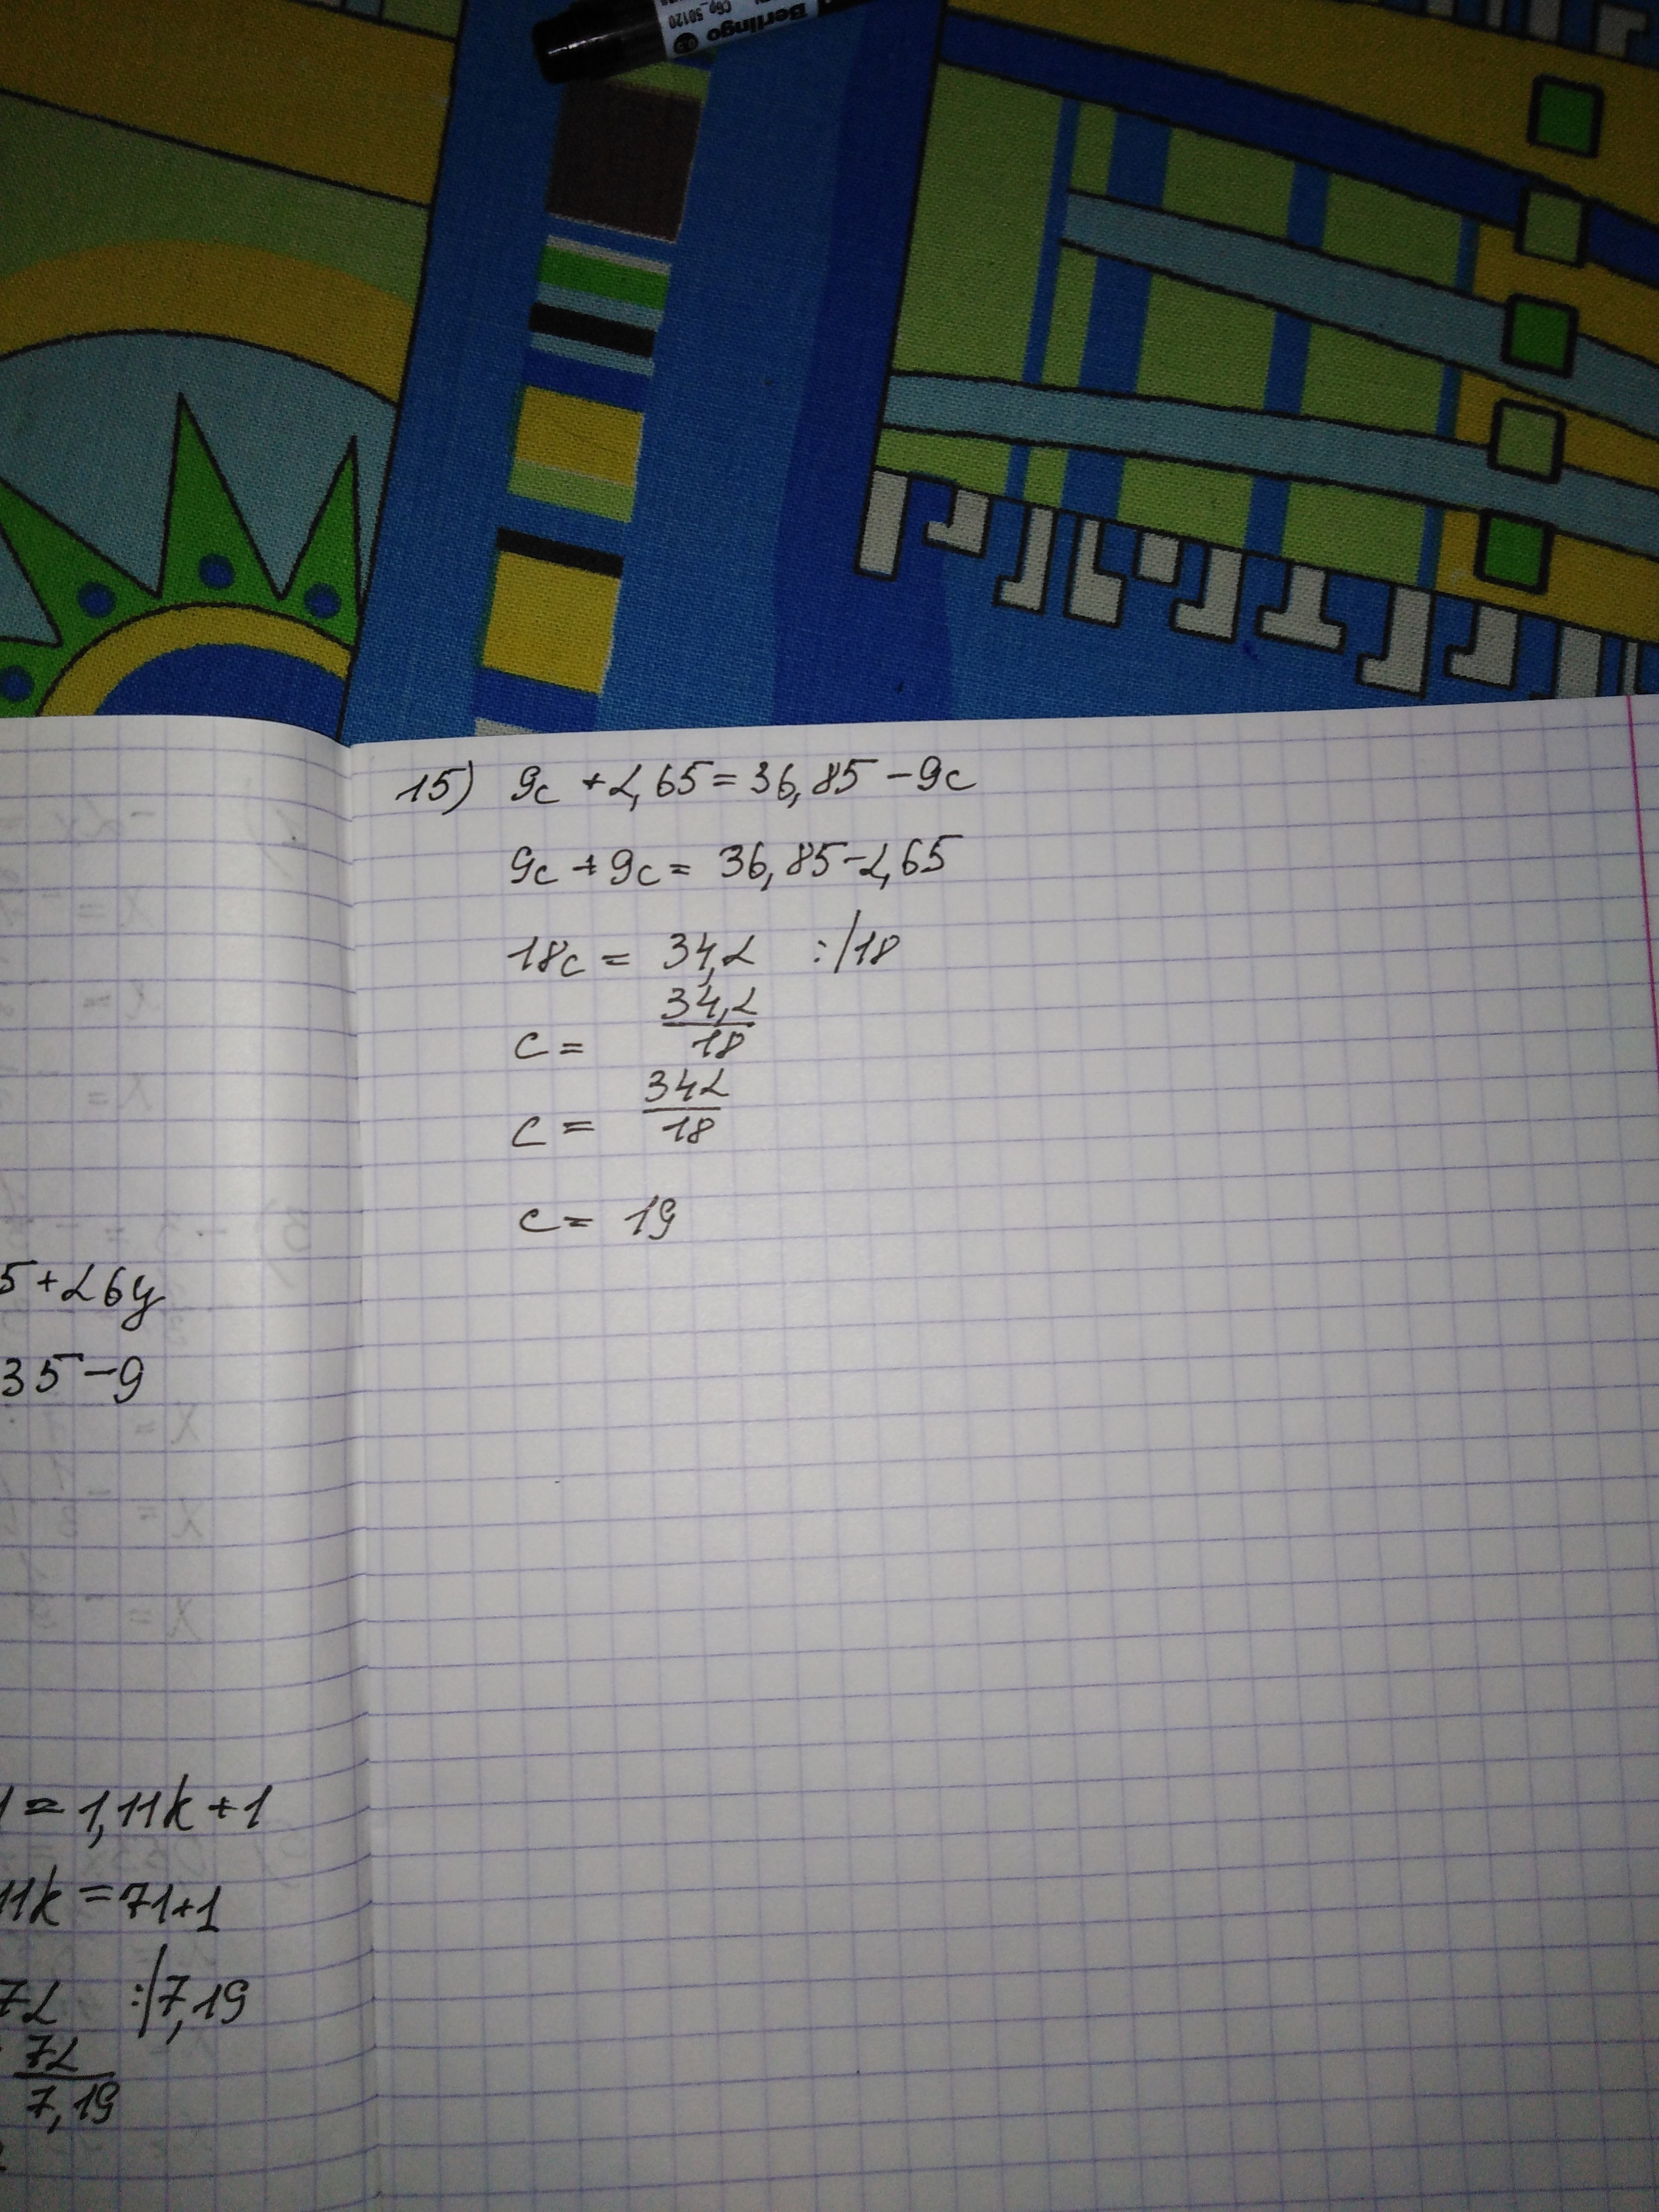 Berlingo
CBp_50120
15) 9c + 2,65 = 36,85 - 9c
9c + 9c = 36,85 - 2,65
18c = 34,2 :/18
c = 34,2/18
c = 342/18
c = 19
5 + 26y
35 - 9
1 = 1,11k + 1
11k = 71 + 1
72 :/7,19
72/7,19